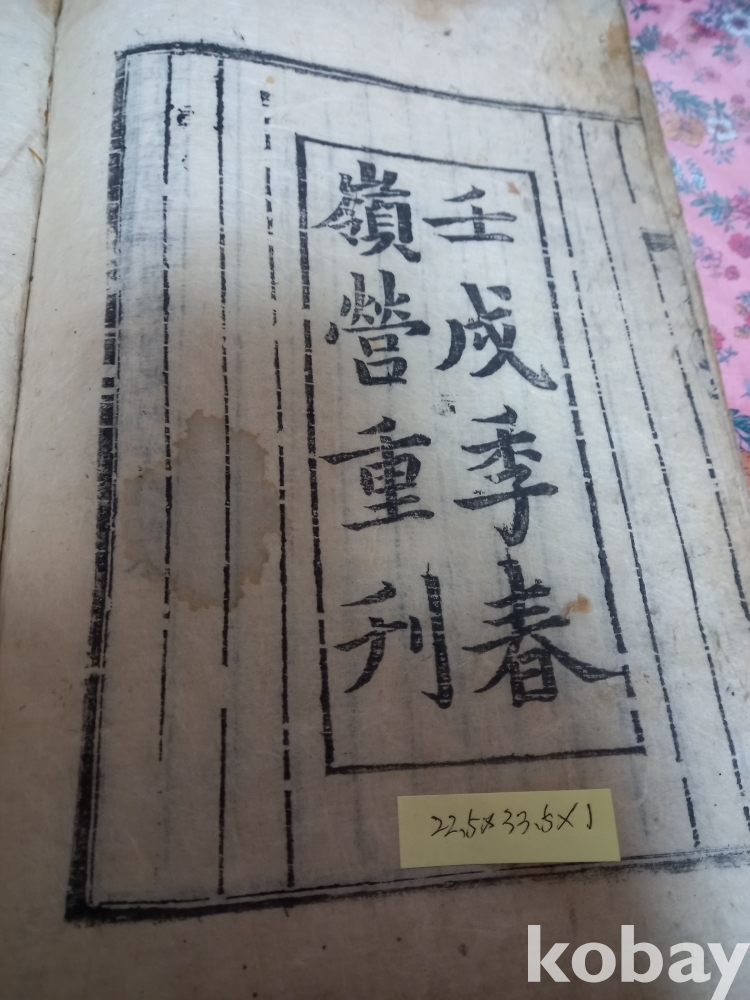 壬戌季春
嶺營重刊
22.5x33.5x1
kobay